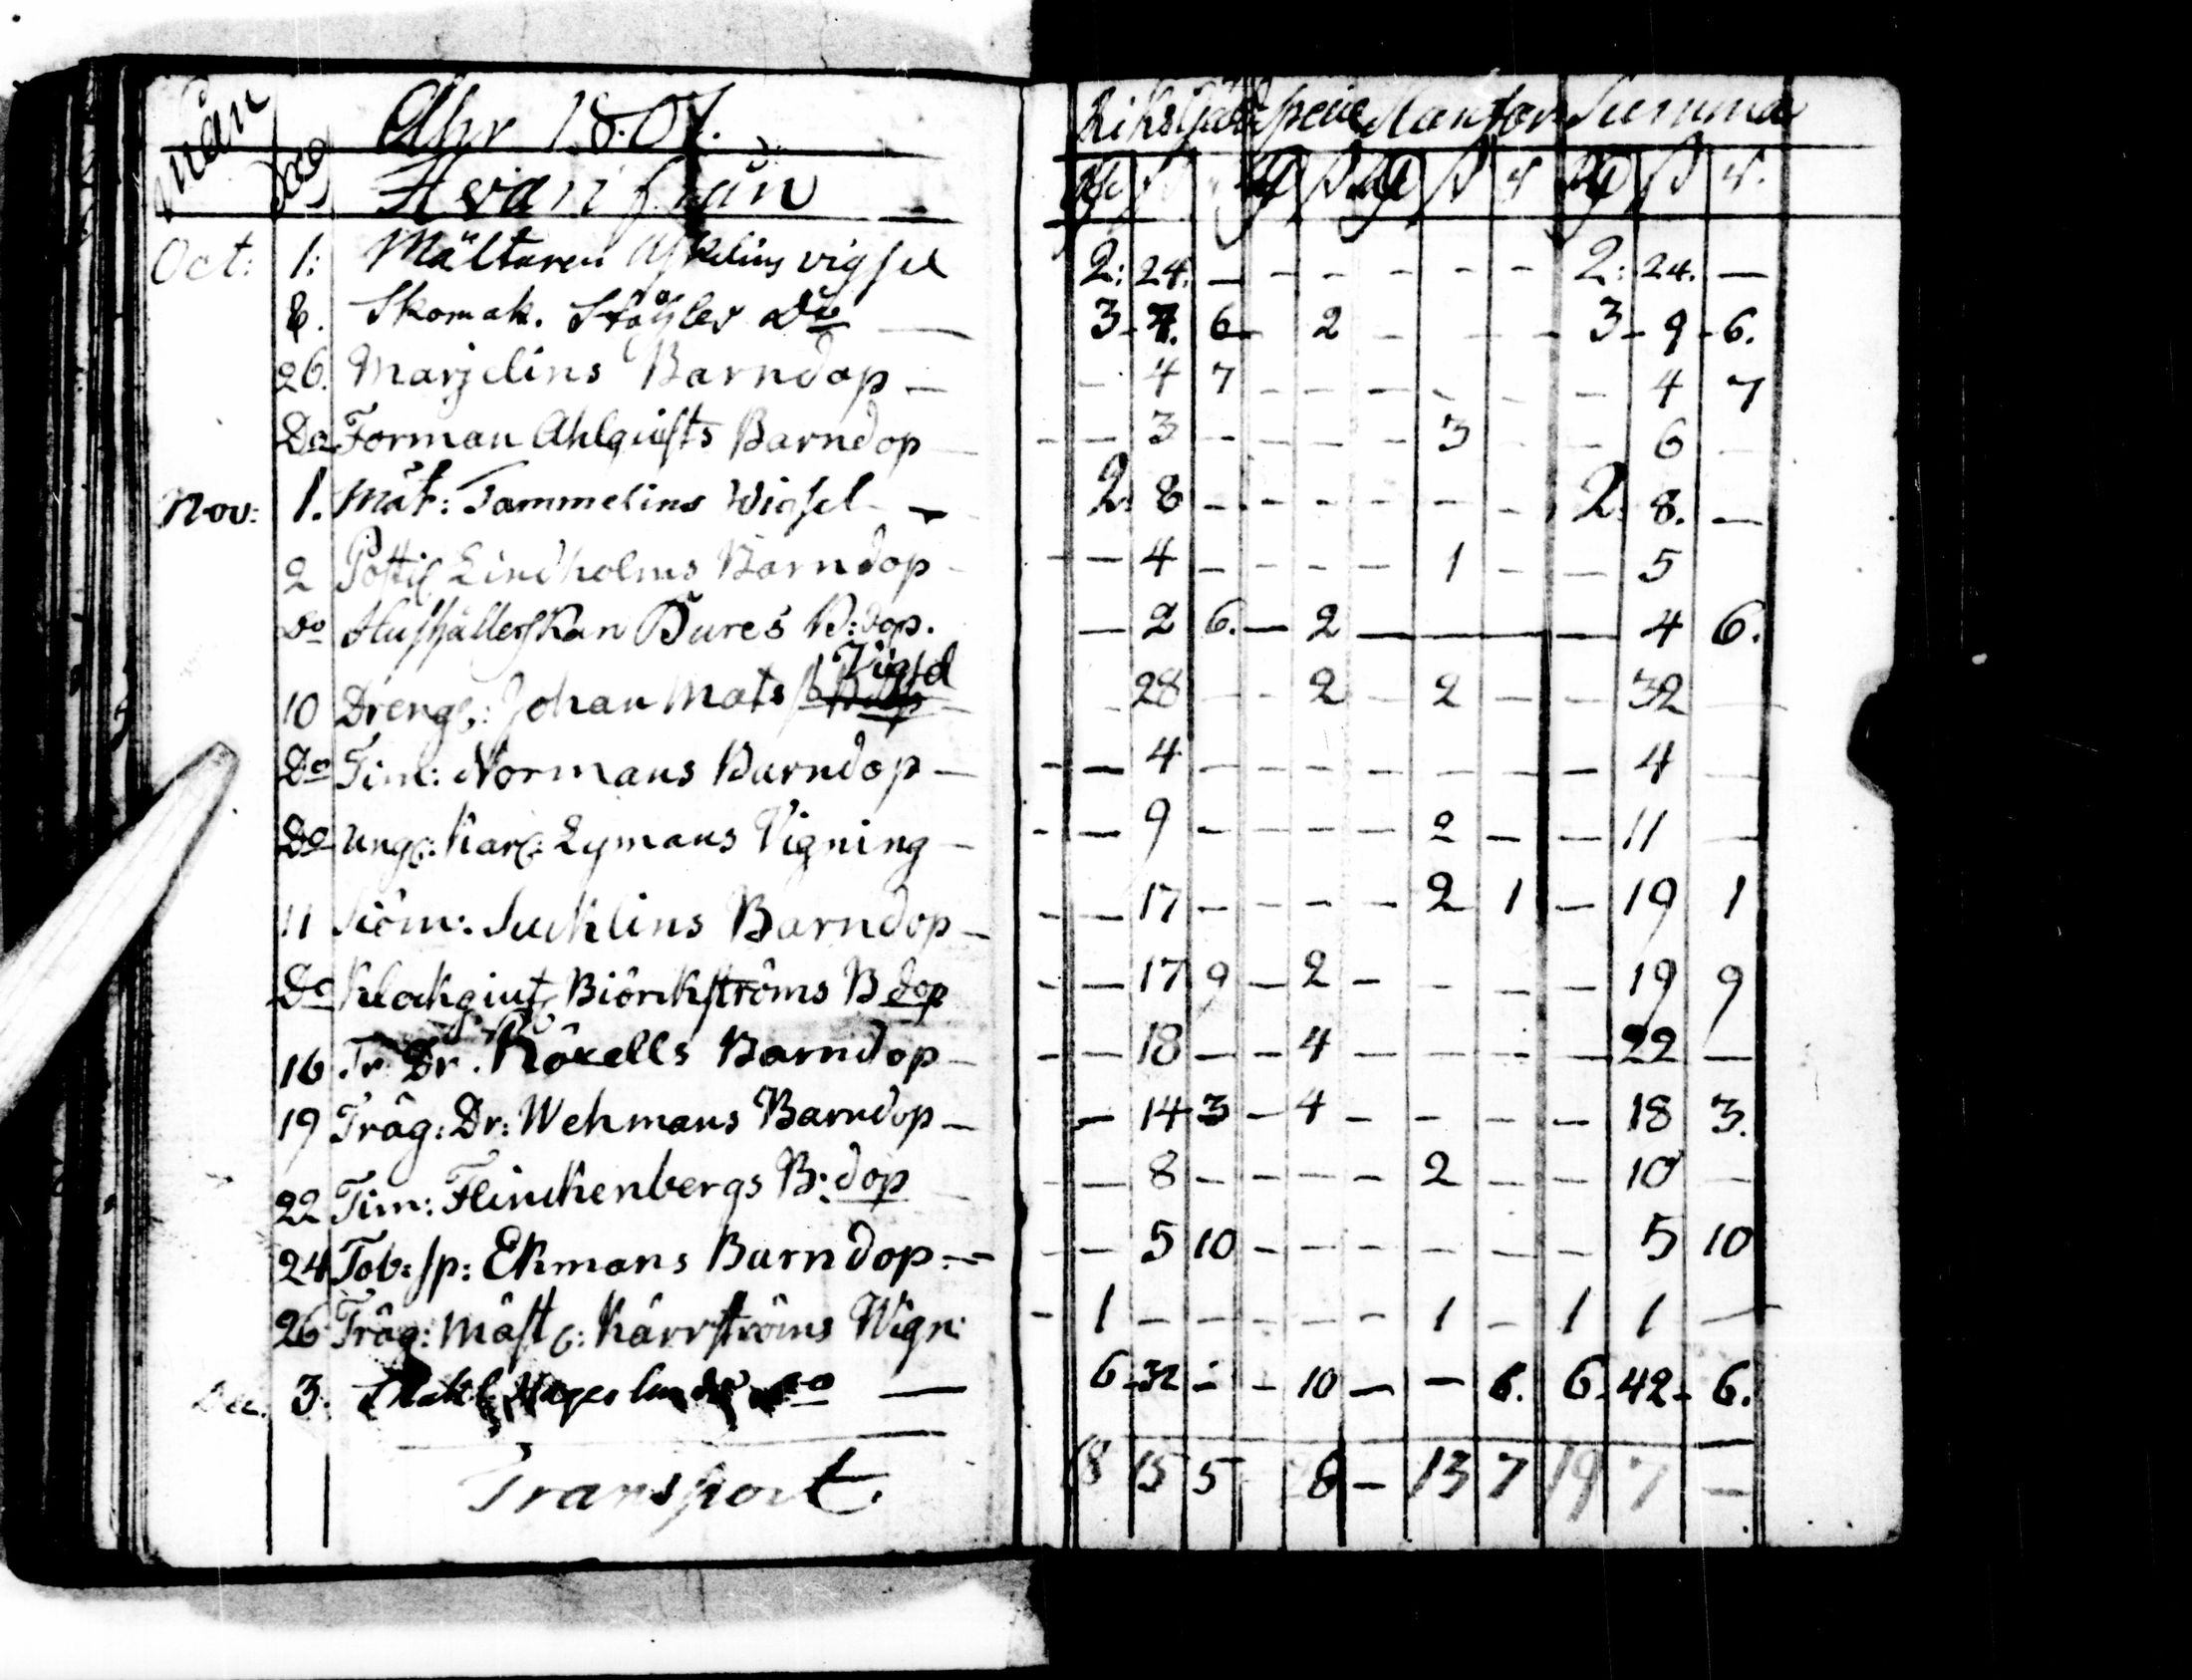 Mån Dag Åhr 1807. Riksgäld specie Slantar Summa
Hvarifrån
Oct: 1: Mältaren Askelins vigsel 2: 24. — - - - - - - 2: 24. —
8. Skomak. Ståhles Do — 3 - 7. 6 - 2 - - - - 3 - 9 - 6.
26. Marjelins Barndop — - 4 7 - - - - - - 4 7
Do Forman Ahlquists Barndop - — 3 - - - - 3 - - 6
Nov: 1. Mät: Tammelins Wigsel — 2. 8 - - - - - - 2. 8. —
2 Postil Lindholms Barndop - — 4 - - - - 1 - — 5
Do Hushållerskan Bures B: dop. — 2 6. — 2 — — — 4 6.
10 Dreng: Johan Mats Vigsel - 28 - - 2 - 2 - 32
Do Tim: Normans Barndop — - — 4 - - - - - - — 4 —
Do Ung: Karl: Lymans Vigning — - — 9 - - - - 2 — — 11 —
11 Siöm: Sucklins Barndop — - — 17 - - - - 2 1 — 19 1
Do Klockgiut: Biörckströms B dop - — 17 9 — 2 - - - - - 19 9
16 Tr: Dr. Roxells Barndop — - — 18 — - 4 — - - - — 22 —
19 Träg: Dr: Wehmans Barndop — — 14 3 — 4 - - - - — 18 3.
22 Tim: Flinckenbergs B: dop - — 8 - - - - 2 - - 10 —
24 Tob: sp: Ekmans Barndop - — 5 10 - - - - - - - 5 10
26 Träg: Mäst: Kärrströms Wign: - 1 - - - - - 1 - 1 1 —
Dec. 3. Do — 6 - 32 - - 10 — — 6. 6 - 42 - 6.
Transport 18 15 5 8 — 13 7 19 7 —